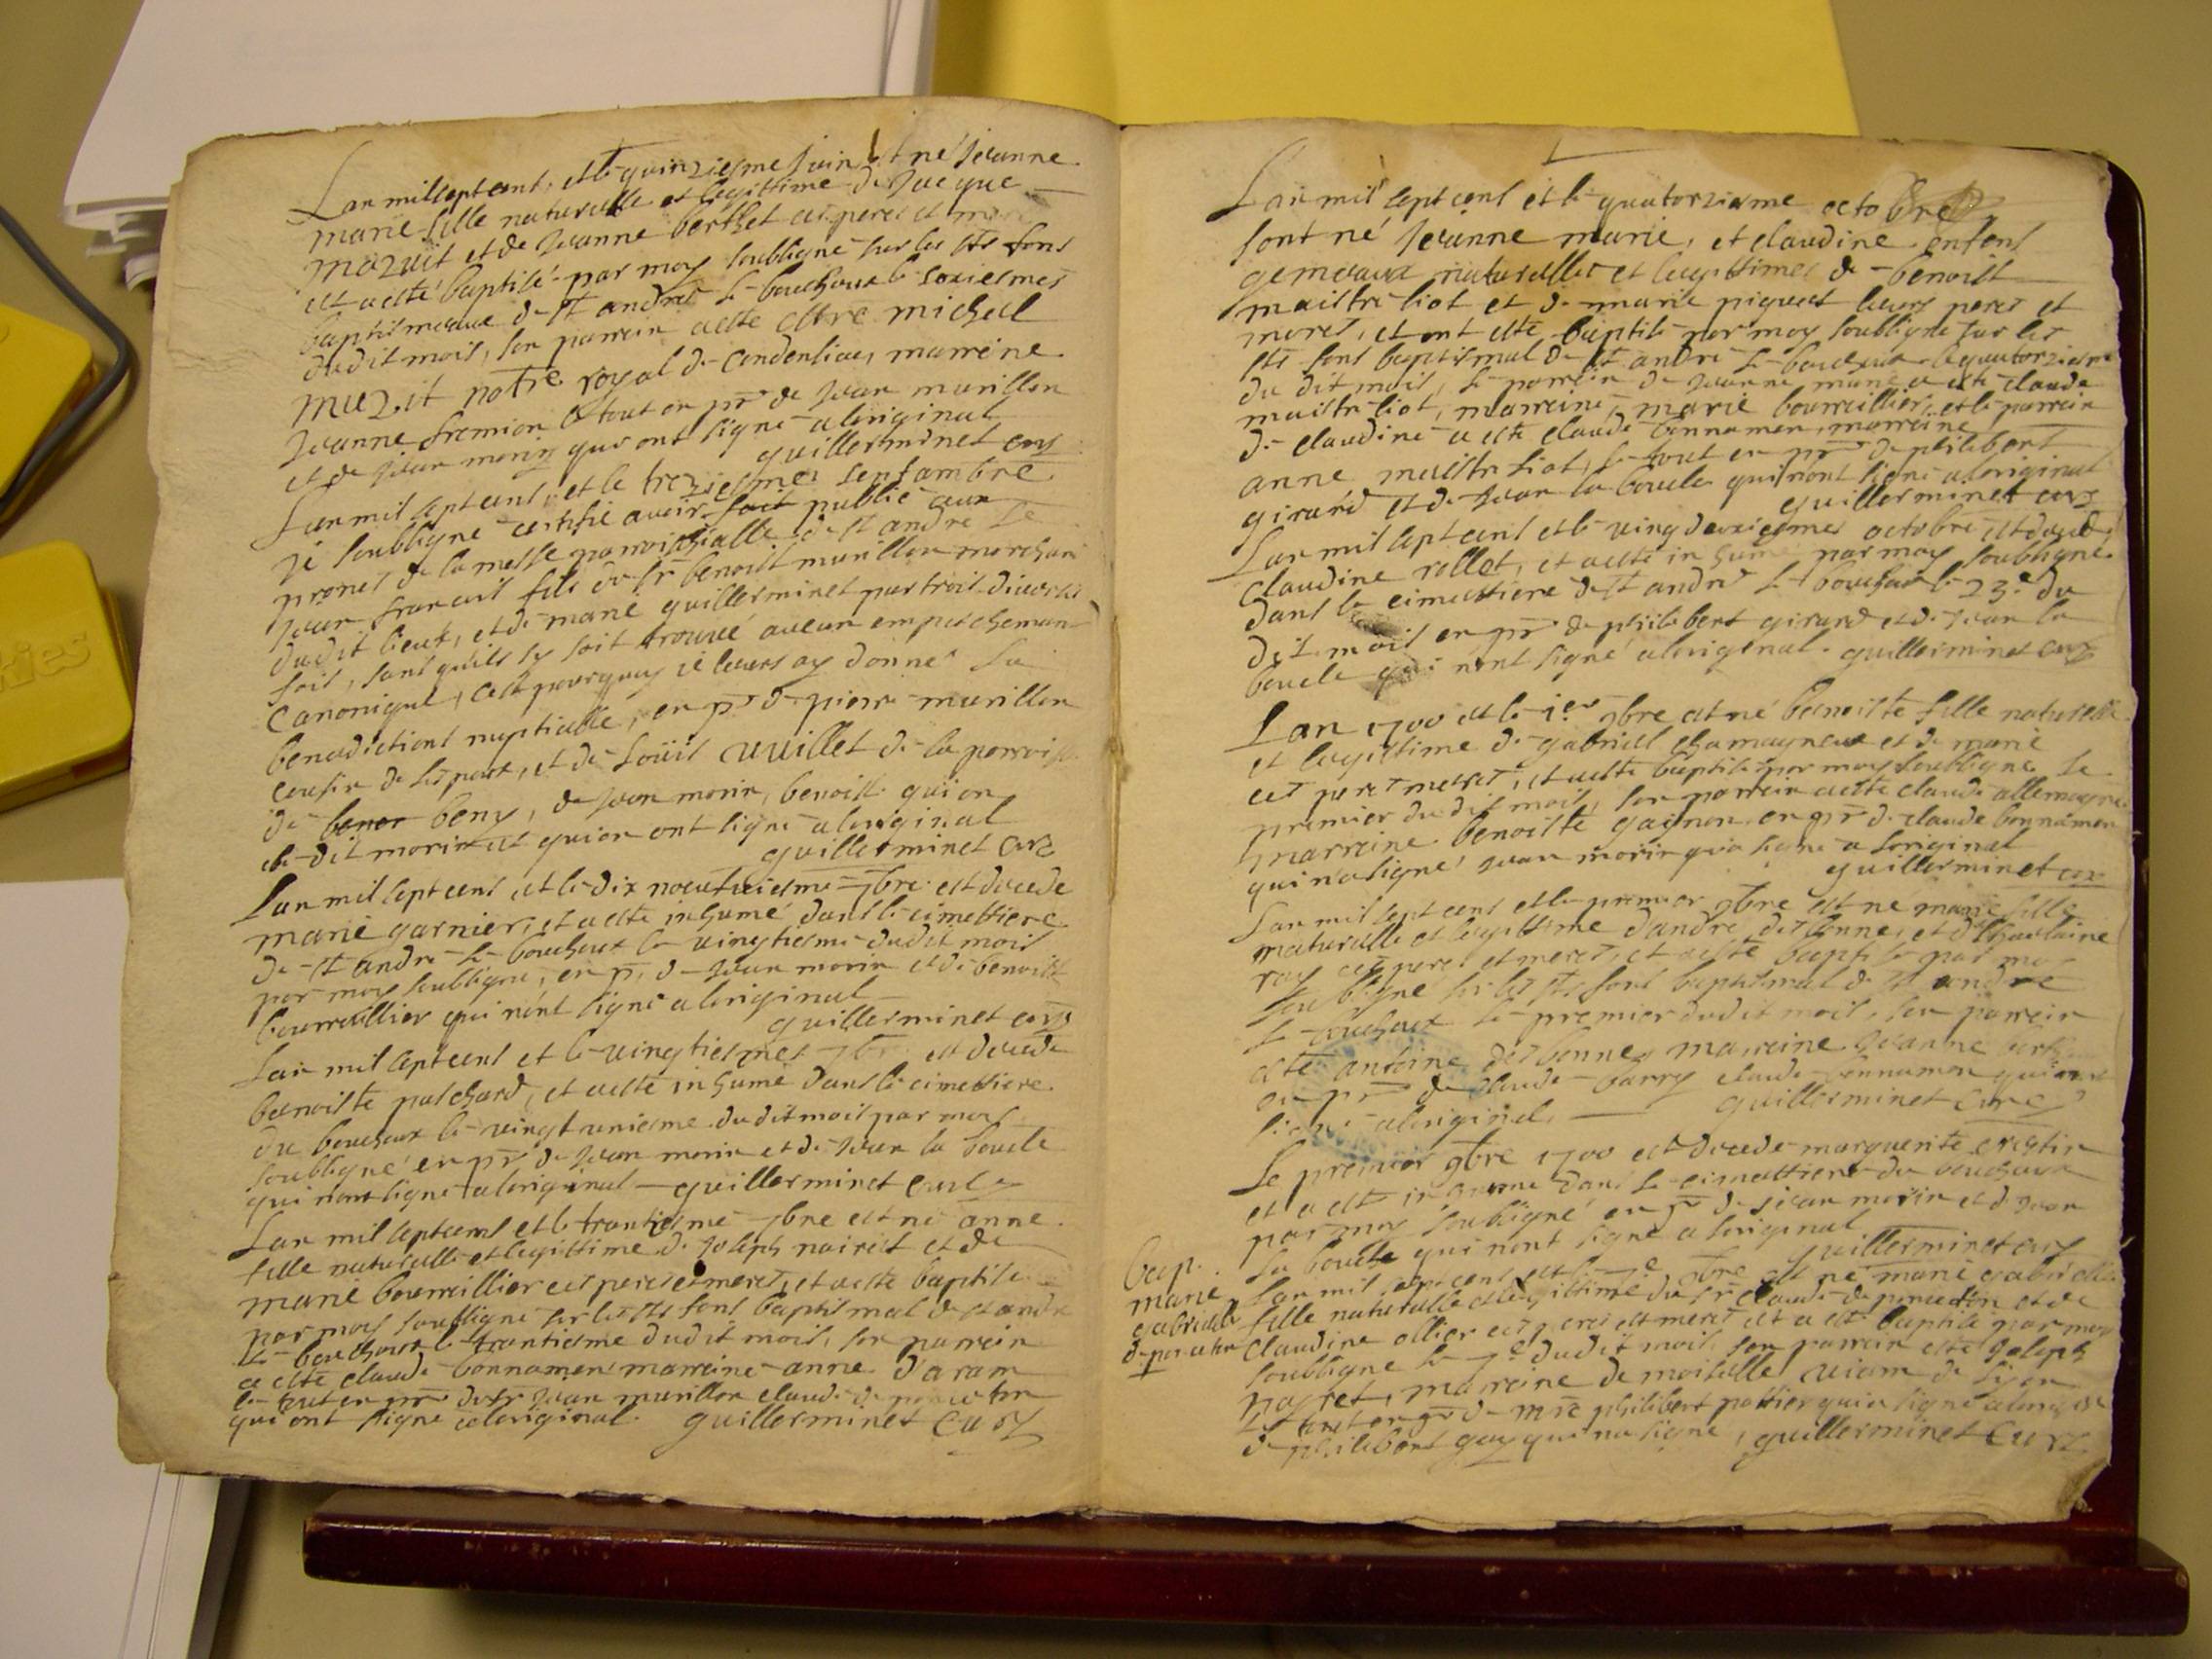 Lan mil sept cent, et le quinziesme juin est né jeanne
marie fille naturelle et legittime de Jacque
mazuit et de Jeanne berthet ces peres et mere
et a esté baptisé par moy soubsigne sur les sts fons
baptismeaux de st andré le bouchoux le seziesmes
dudit mois, son parrein a esté estre michel
muzit notre royal de condensiau, marreine
Jeanne fremion le tout en pnce de Jean murillon
et de Jean morin qui ont signé a loriginal
guillerminet curé
Lan mil sept cens, et le treziesme septambre
je soubsigne certifie avoir fait publié aux
prones de la messe parroischialle de st andre le
jean francois fils du sr benoist murillon marchan
dudit lieux, et de marie guillerminet par trois diverses
fois, sans quils sy soit trouvé aucun empeschemen
canonique, cest pourquoy je leurs ay donné la
benedictions nuptialle, en pnce de pierre murillon
cousin de lespoux, et de Loüis vuillet de la parroisse
de bener beny, de jean morin, benoist qui on
le dit morin et qui on ont signé a loriginal
guillerminet curé
Lan mil sept cens, et le dix neufviesme 7bre est decede
marie garnier, et a esté inhumé dans le cimettiere
de st andre le bouchoux le vingtiesme dudit mois
par moy soubsigne, en pnce de Jean morin et de benoist
bourrellier qui nont signé a loriginal
guillerminet curé
Lan mil sept cens et le vingtiesmes 7bre est decede
benoiste putchard, et a esté inhumé dans le cimettiere
du bouchoux le vingt uniesme dudit mois par moy
soubsigné en pnce de Jean morin et de Jean la boucle
qui nont signé a loriginal guillerminet curé
Lan mil sept cens et le trantiesme 7bre est né anne
fille naturelle et legittime de Joseph noiret et de
marie bourrillier ces peres et meres, et a esté baptise
par moy soubsigne sur les sts fons baptismal de st andre
le bouchoux le trantiesme dudit mois, son parrein
a esté claude bonnamen marreine anne daram
le tout en pnce de sr Jean murillon claude de poncetton
qui ont signe a loriginal. guillerminet curé
Lan mil sept cens et le quatorziesme octobre
sont né Jeanne marie, et claudine enfens
gemeaux naturelles et legittimes de benoist
maistre liot et de marie piquest leurs peres et
meres, et ont esté baptisé par moy soubsigne sur les
sts fons baptismal de st andre le bouchoux le quatorziesme
du dit mois, le parrein de Jeanne marie a esté claude
maistre liot, marreine marie bourrillier, et le parrein
de claudine a esté claude bonnamen, marreine
anne maistre liot, le tout en pnce de philibert
girard et de Jean la boucle qui nont signé a loriginal
guillerminet curé
Lan mil sept cens et le ving deuxiesmes octobre est decede
claudine rollet, et a esté inhumé par moy soubsigne
dans le cimettiere de st andre le bouchoux le 23e du
dit mois en pnce de philibert girard et de Jean la
boucle qui nont signé a loriginal. guillerminet curé
Lan 1700 et le 1er 9bre est né benoiste fille naturelle
et legittime de gabriel chamagneux et de marie
ces peres meres, et a esté baptisé par moy soubsigne le
premier du dit mois, son parrein a esté claude allemagne
marreine benoiste gainon en pnce de claude bonnamen
qui na signé jean morin qui a signé a loriginal
guillerminet curé
Lan mil sept cens et le premier 9bre est né marie fille
naturelle et legittime dandré desbonne, et de
roy ces peres et meres, et a esté baptisé par moy
soubsigné sur les sts fons baptismal de st andre
le bouchoux le premier dudit mois, son parrein
a esté antoine desbonne, marreine Jeanne
en pnce de claude barry claude bonnamen qui ont
signé a loriginal, guillerminet curé
Le premier 9bre 1700 est decede marguerite
et a esté inhumé dans le cimettiere du bouchoux
par moy soubsigné en pnce de jean morin et de jean
la boucle qui nont signé a loriginal
guillerminet curé
bap.
marie
gabrielle
de poncetton
Lan mil sept cens et le 9bre est né marie gabrielle
fille naturelle et legittime du sr claude de poncetton et de
claudine ollier ces peres et meres et a esté baptisé par moy
soubsigne le dudit mois, son parrein esté Joseph
marreine de moiselle
le tout en pnce de mre philibert pottier qui a signé a loriginal
de philibert gay qui na signe, guillerminet curé